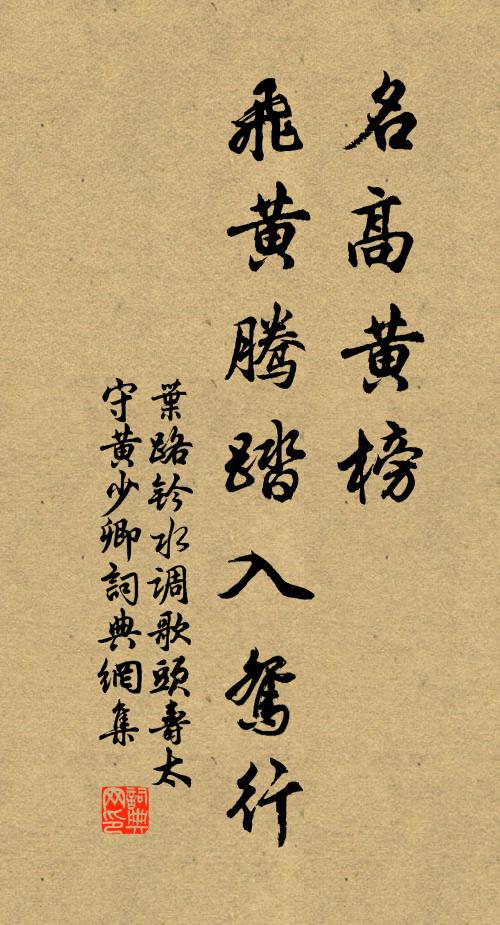 名高黄榜
飛黄騰踏入鴛行
葉路鈐水调歌頭壽太
守黄少卿詞典網集
詞典
网印